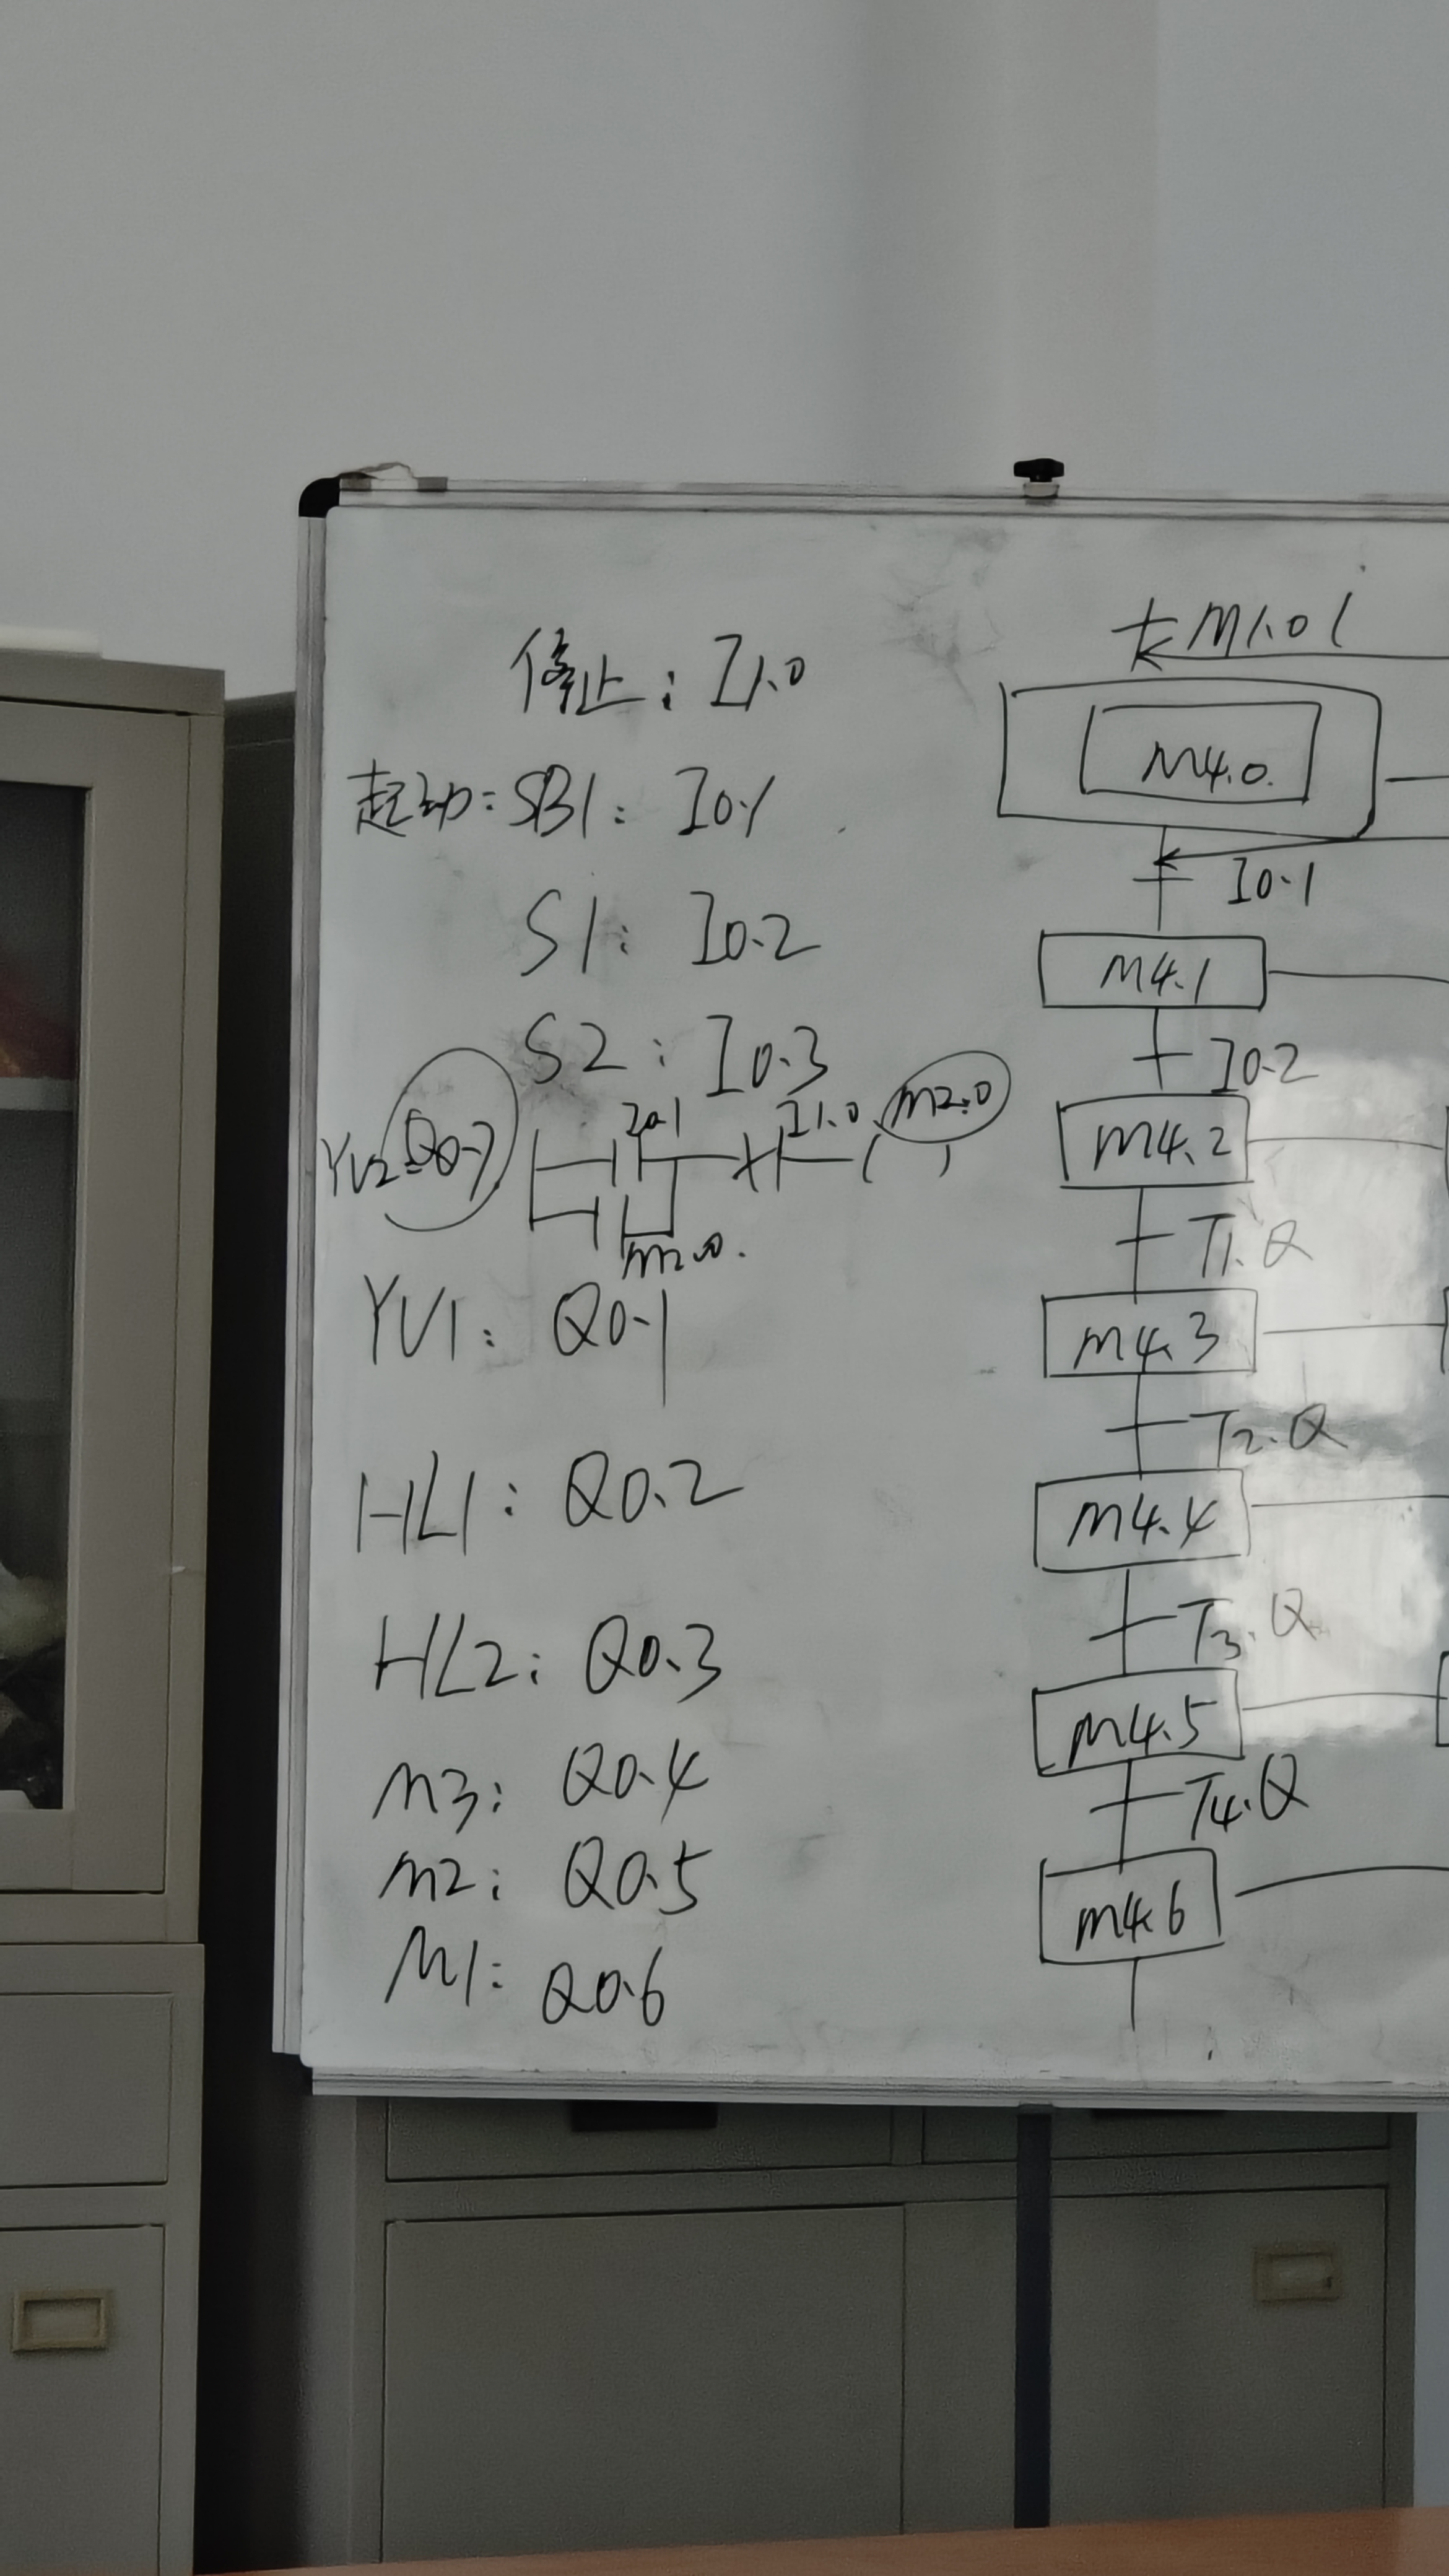 停止: I1.0
起动: SB1: I0.1
S1: I0.2
S2: I0.3
YV2: Q0.7
I0.1 I1.0 M2.0
M2.0
YV1: Q0.1
HL1: Q0.2
HL2: Q0.3
M3: Q0.4
M2: Q0.5
M1: Q0.6
M1.0
M4.0
I0.1
M4.1
I0.2
M4.2
T1.Q
M4.3
T2.Q
M4.4
T3.Q
M4.5
T4.Q
M4.6